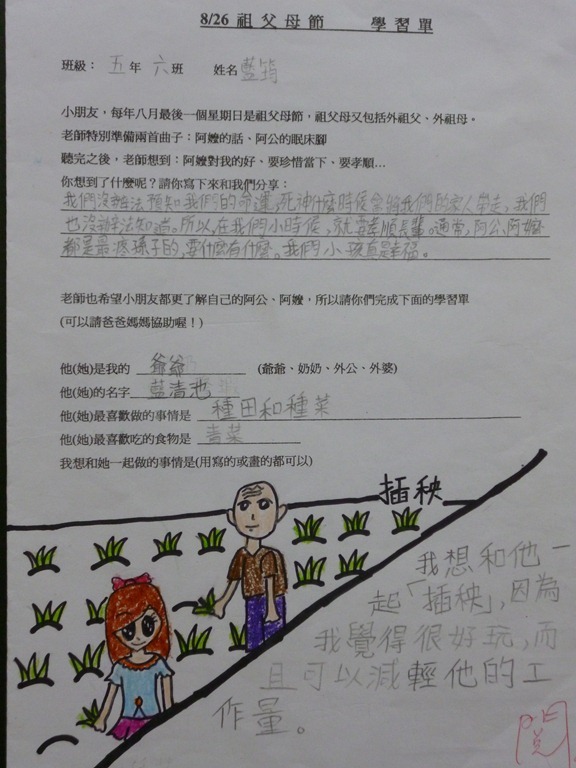 8/26 祖父母節 學習單
班級： 五年 六班 姓名 藍筠
小朋友，每年八月最後一個星期日是祖父母節，祖父母又包括外祖父、外祖母。
老師特別準備兩首曲子：阿嬤的話、阿公的眠床腳
聽完之後，老師想到：阿嬤對我的好、要珍惜當下、要孝順…
你想到了什麼呢？請你寫下來和我們分享：
我們沒辦法預知我們的命運，死神什麼時候會將我們的家人帶走，我們
也沒辦法知道。所以，在我們小時候，就要孝順長輩。通常，阿公、阿嬤
都是最疼孫子的，要什麼有什麼。我們小孩真是幸福。
老師也希望小朋友都更了解自己的阿公、阿嬤，所以請你們完成下面的學習單
(可以請爸爸媽媽協助喔！)
他(她)是我的 爺爺 (爺爺、奶奶、外公、外婆)
他(她)的名字 藍清池
他(她)最喜歡做的事情是 種田和種菜
他(她)最喜歡吃的食物是 青菜
我想和她一起做的事情是(用寫的或畫的都可以)
插秧
我想和他一
起「插秧」，因為
我覺得很好玩，而
且可以減輕他的工
作量。
閱